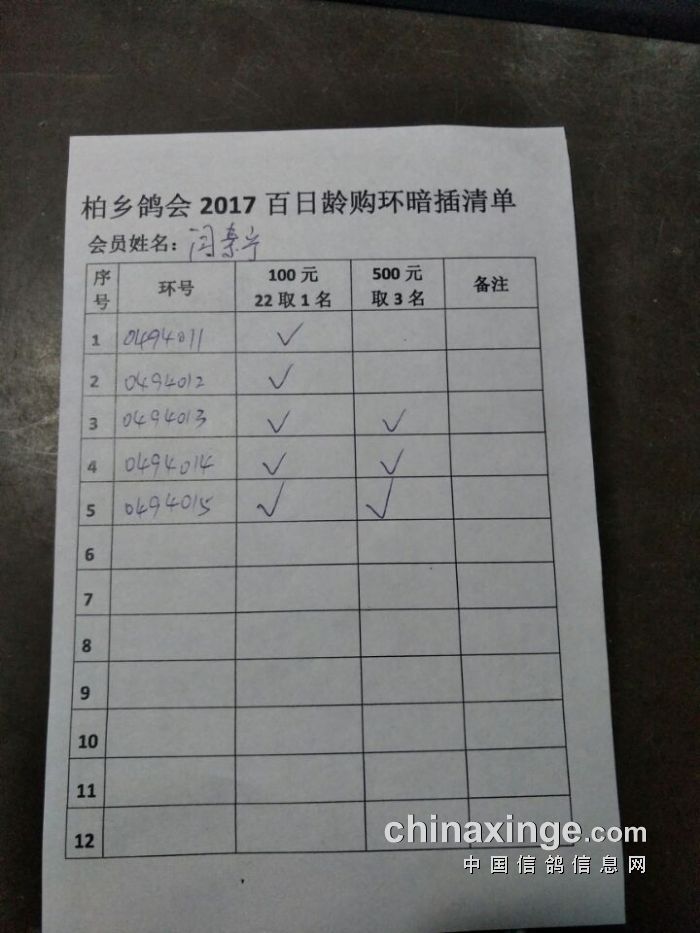 柏乡鸽会 2017 百日龄购环暗插清单
会员姓名：闫素宁
序号 环号 100 元 22 取 1 名 500 元 取 3 名 备注
1 0494011 ✓
2 0494012 ✓
3 0494013 ✓ ✓
4 0494014 ✓ ✓
5 0494015 ✓ ✓
6
7
8
9
10
11
12
chinaxinge.com
中国信鸽信息网